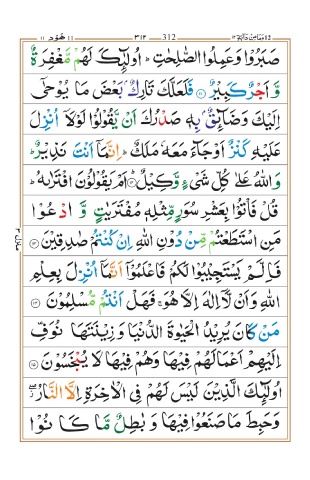 ۱۱ هُوۡد ۱۱ ۳۱۲ 312
صَبَرُوۡا وَعَمِلُوا الصّٰلِحٰتِ ؕ اُولٰٓئِكَ لَهُمۡ مَّغۡفِرَةٌ
وَّ اَجۡرٌ كَبِيۡرٌ ۱۱ فَلَعَلَّكَ تَارِكٌۢ بَعۡضَ مَا يُوۡحٰٓى
اِلَيۡكَ وَضَآئِقٌۢ بِهٖ صَدۡرُكَ اَنۡ يَّقُوۡلُوۡا لَوۡلَاۤ اُنۡزِلَ
عَلَيۡهِ كَنۡزٌ اَوۡ جَآءَ مَعَهٗ مَلَكٌ ؕ اِنَّمَاۤ اَنۡتَ نَذِيۡرٌ ؕ
وَاللّٰهُ عَلٰى كُلِّ شَىۡءٍ وَّكِيۡلٌ ؕ ۱۲ اَمۡ يَقُوۡلُوۡنَ افۡتَرٰٮهُ ؕ
قُلۡ فَاۡتُوۡا بِعَشۡرِ سُوَرٍ مِّثۡلِهٖ مُفۡتَرَيٰتٍ وَّ ادۡعُوۡا
مَنِ اسۡتَطَعۡتُمۡ مِّنۡ دُوۡنِ اللّٰهِ اِنۡ كُنۡتُمۡ صٰدِقِيۡنَ ۱۳
فَاِلَّمۡ يَسۡتَجِيۡبُوۡا لَكُمۡ فَاعۡلَمُوۡۤا اَنَّمَاۤ اُنۡزِلَ بِعِلۡمِ
اللّٰهِ وَاَنۡ لَّاۤ اِلٰهَ اِلَّا هُوَ ۚ فَهَلۡ اَنۡتُمۡ مُّسۡلِمُوۡنَ ۱۴
مَنۡ كَانَ يُرِيۡدُ الۡحَيٰوةَ الدُّنۡيَا وَ زِيۡنَتَهَا نُوَفِّ
اِلَيۡهِمۡ اَعۡمَالَهُمۡ فِيۡهَا وَهُمۡ فِيۡهَا لَا يُبۡخَسُوۡنَ ۱۵
اُولٰٓئِكَ الَّذِيۡنَ لَيۡسَ لَهُمۡ فِى الۡاٰخِرَةِ اِلَّا النَّارُ ۖ
وَحَبِطَ مَا صَنَعُوۡا فِيۡهَا وَ بٰطِلٌ مَّا كَانُوۡا